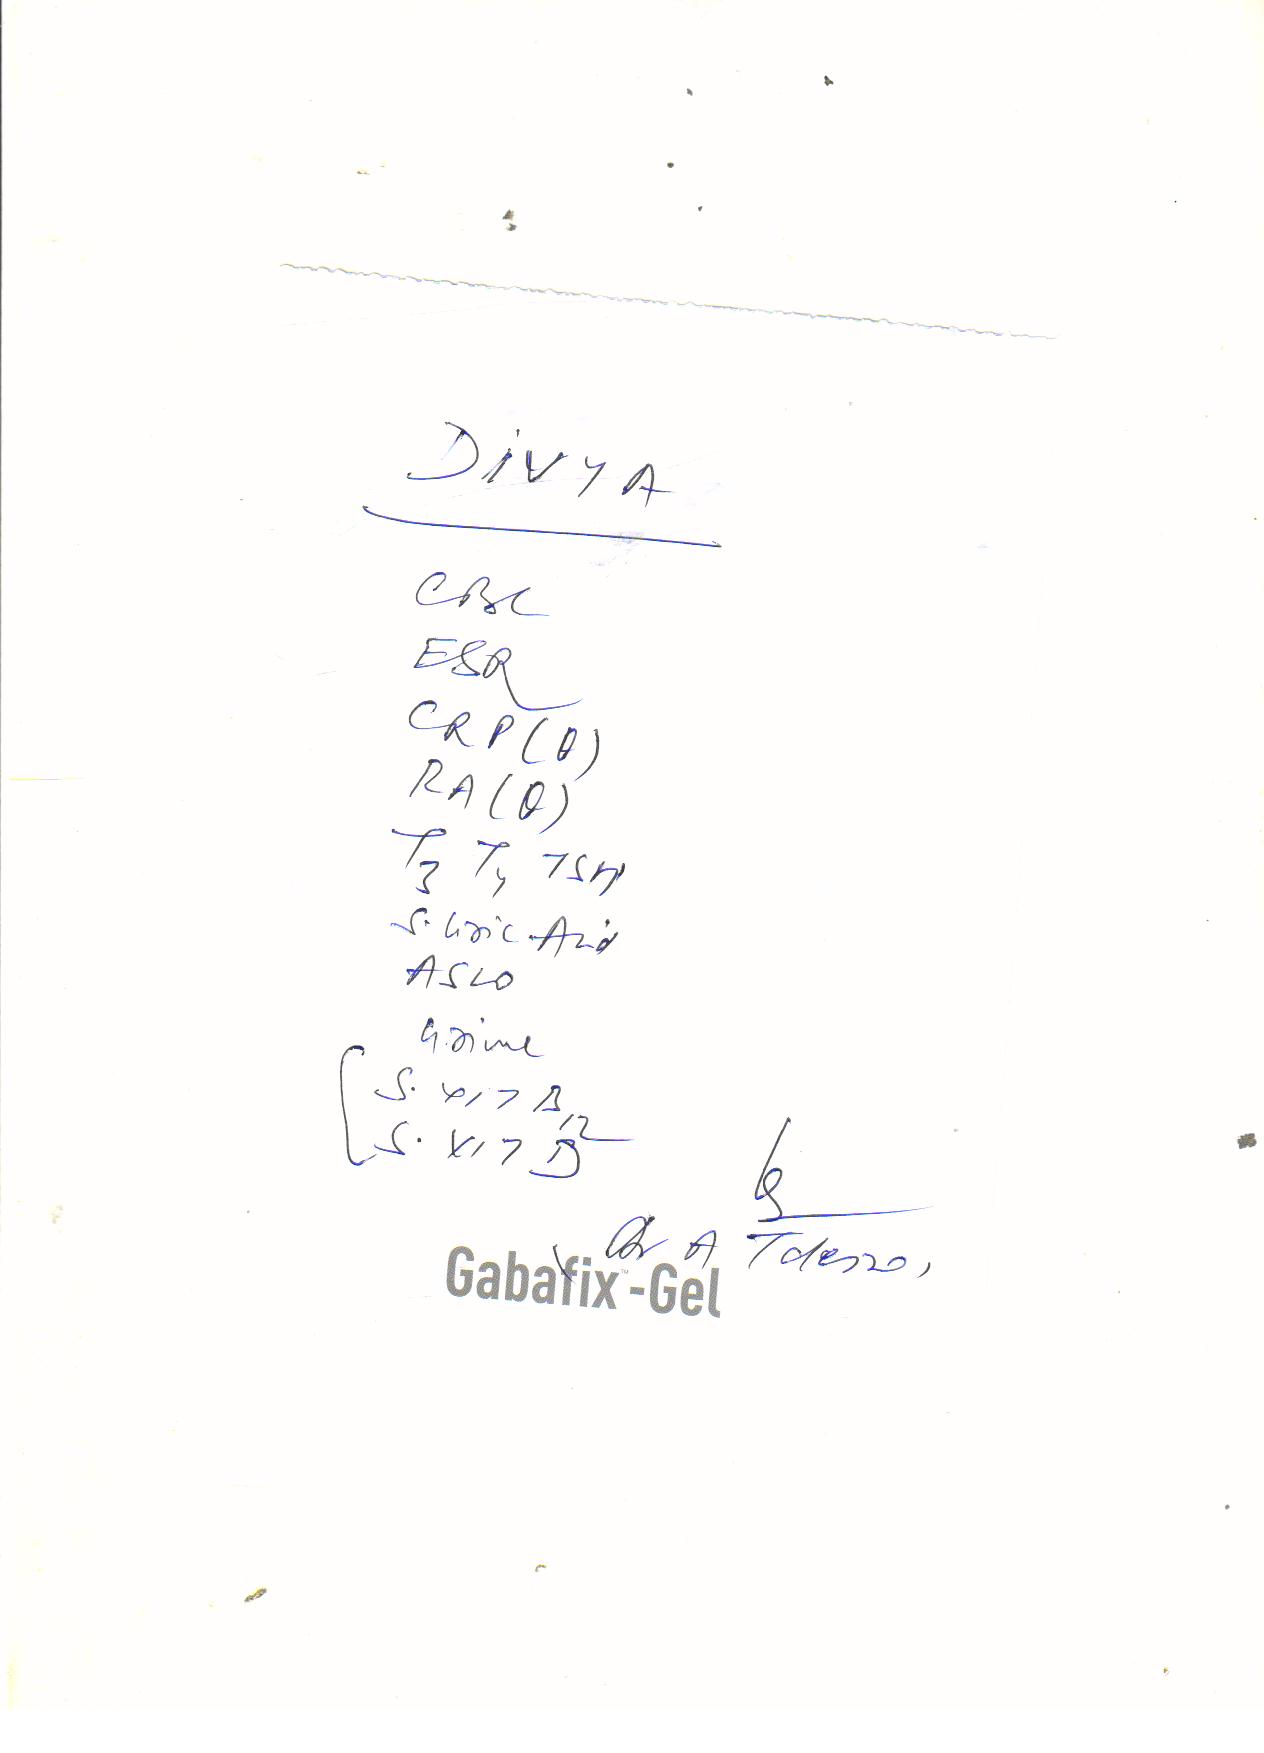 DIVYA
CBC
ESR
CRP (Q)
RA (Q)
T3 T4 TSH
S. Uric Acid
ASLO
Urine
S. VIT B12
S. VIT D
Dr A
Gabafix™-Gel